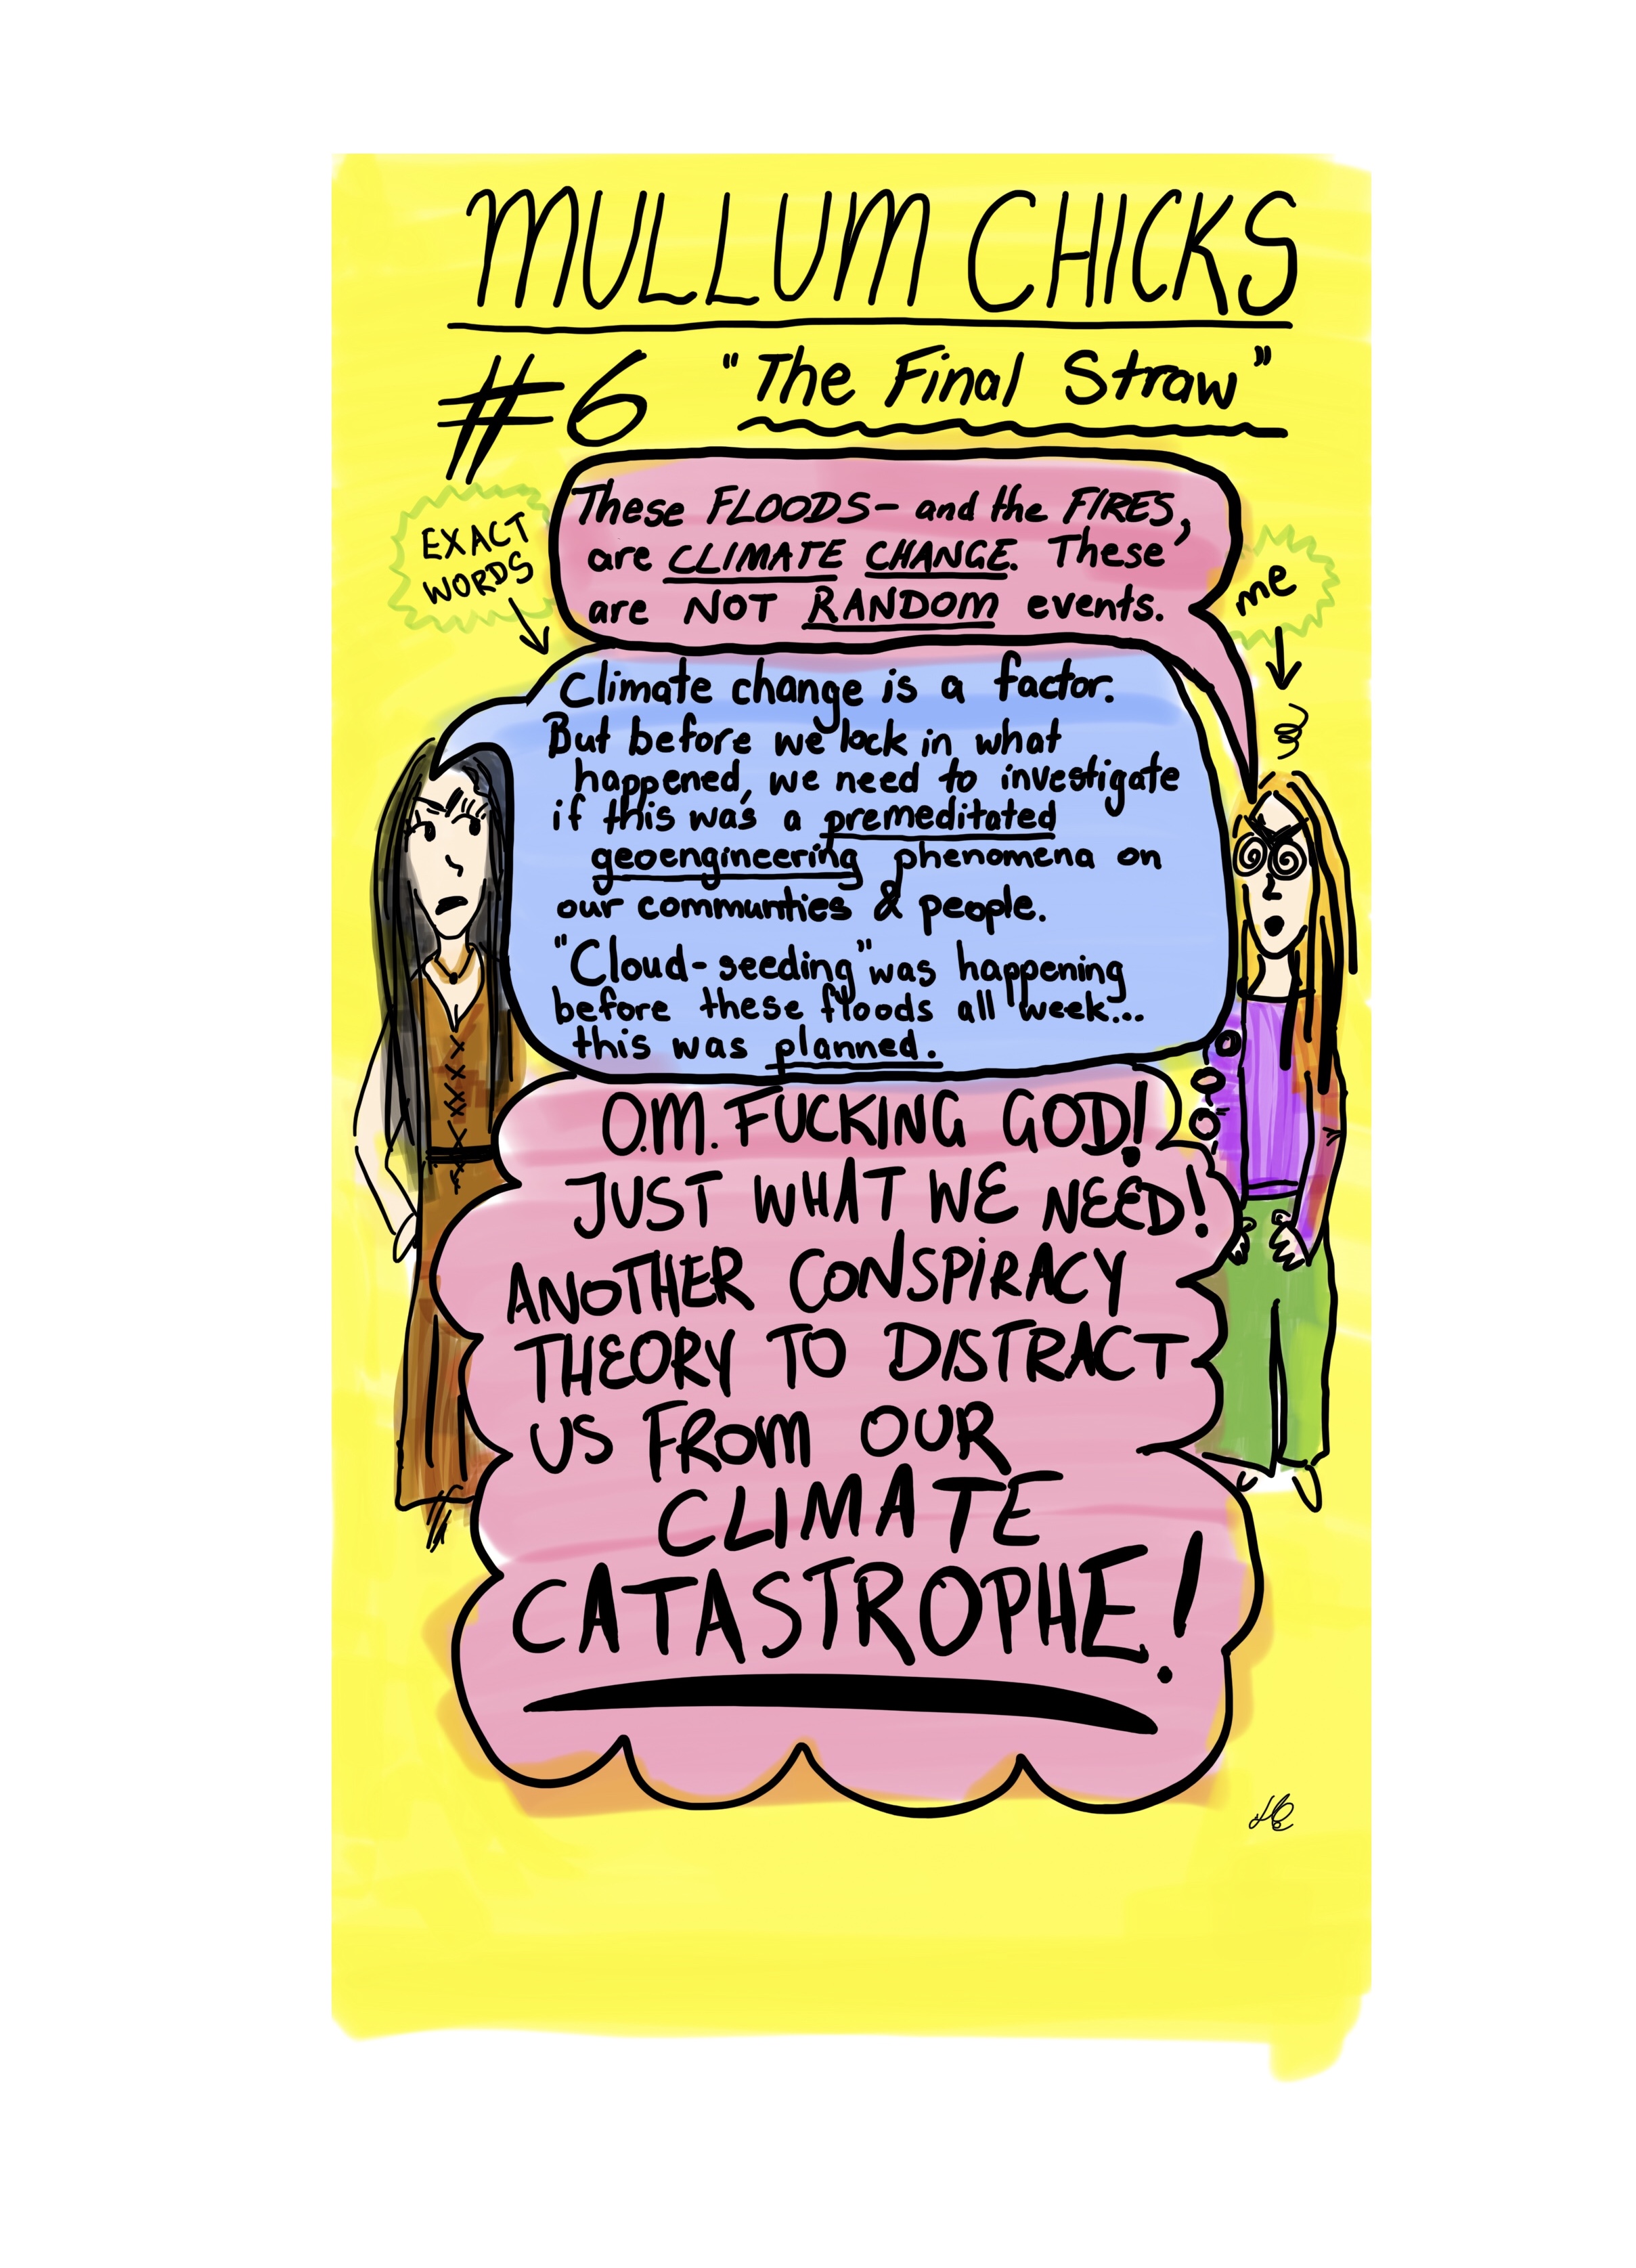 MULLUM CHICKS
#6 "The Final Straw"
EXACT
WORDS
These FLOODS- and the FIRES,
are CLIMATE CHANGE. These
are NOT RANDOM events.
me
Climate change is a factor.
But before we lock in what
happened, we need to investigate
if this was a premeditated
geoengineering phenomena on
our communties & people.
"Cloud-seeding" was happening
before these floods all week...
this was planned.
O.M. FUCKING GOD!
JUST WHAT WE NEED!
ANOTHER CONSPIRACY
THEORY TO DISTRACT
US FROM OUR
CLIMATE
CATASTROPHE!